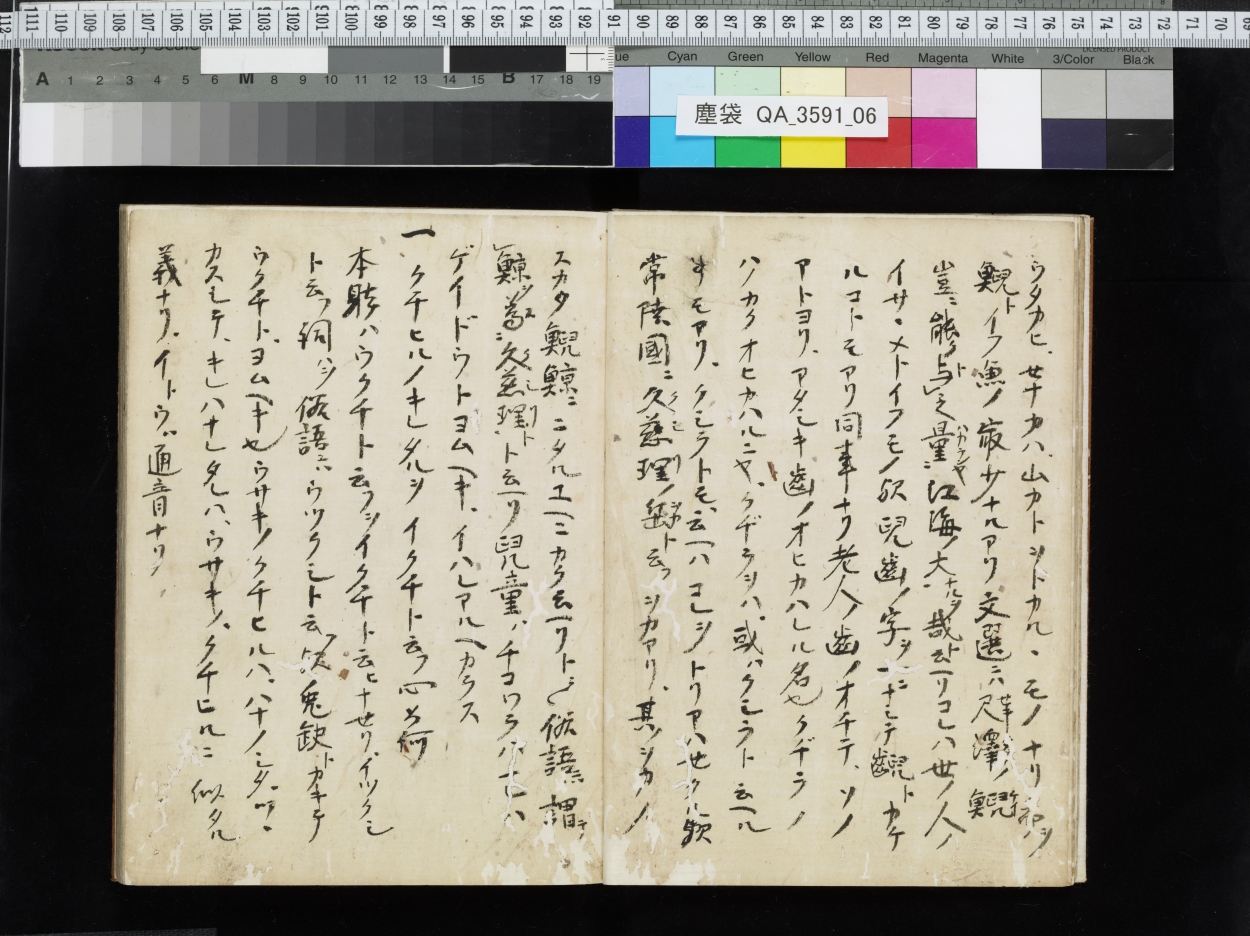 塵袋 QA_3591_06
Cyan Green Yellow Red Magenta White 3/Color Black
LICENSED PRODUCT
A 1 2 3 4 5 6 M 8 9 10 11 12 13 14 15 B 17 18 19
ウタカヒ、せナカハ山カトソトカル、モノナリ
鯢トイフ魚ノ最少ナルアリ文選ニハ尺澤ノ鯢
豈ニ能ク与之量江海ノ大ナルヲ哉ト云ヘリコレハ世ノ人ノ
イサヽメトイフモノ歟兒齒ノ字ヲ一字ニシテ齯トカケ
ルコトモアリ同事ナリ老人ノ齒ノオチテ、ソノ
アトヨリ、アタシキ齒ノオヒカハレル名也クヂラノ
ハノカクオヒカハルニヤ、クヂラヲハ、或ハクシラト云ヘル
事モアリ、クシラトモ云ヘハコレヲトリアハせタル歟
常陸國ニ久慈理ノ岳ト云フヲカアリ、其ノヲカノ
スカタ鯢鯨ニニタルユヘニカク云ヘリトシ俗語ニハ謂
鯨ヲ為久慈理トト云ヘリ兒童ハチコワラハナハ
ゲイドウトヨムヘキ、イハレアルヘカラス
一 クチヒルノキレタルヲイクチト云フ心如何
本躰ハウクチト云フヲイクチト云ヒナせリ、イツクシ
ト云フ詞ヲハ俗語ニハウツクシト云フ歟兔缺トカキテ
ウクチト、ヨムヘキ也ウサキノクチヒルハ、ハナノシタヨリ
カスミテ、キレハナレタレハ、ウサキノ、クチヒルニ似タル
義ナリ、イトウト通音ナリ